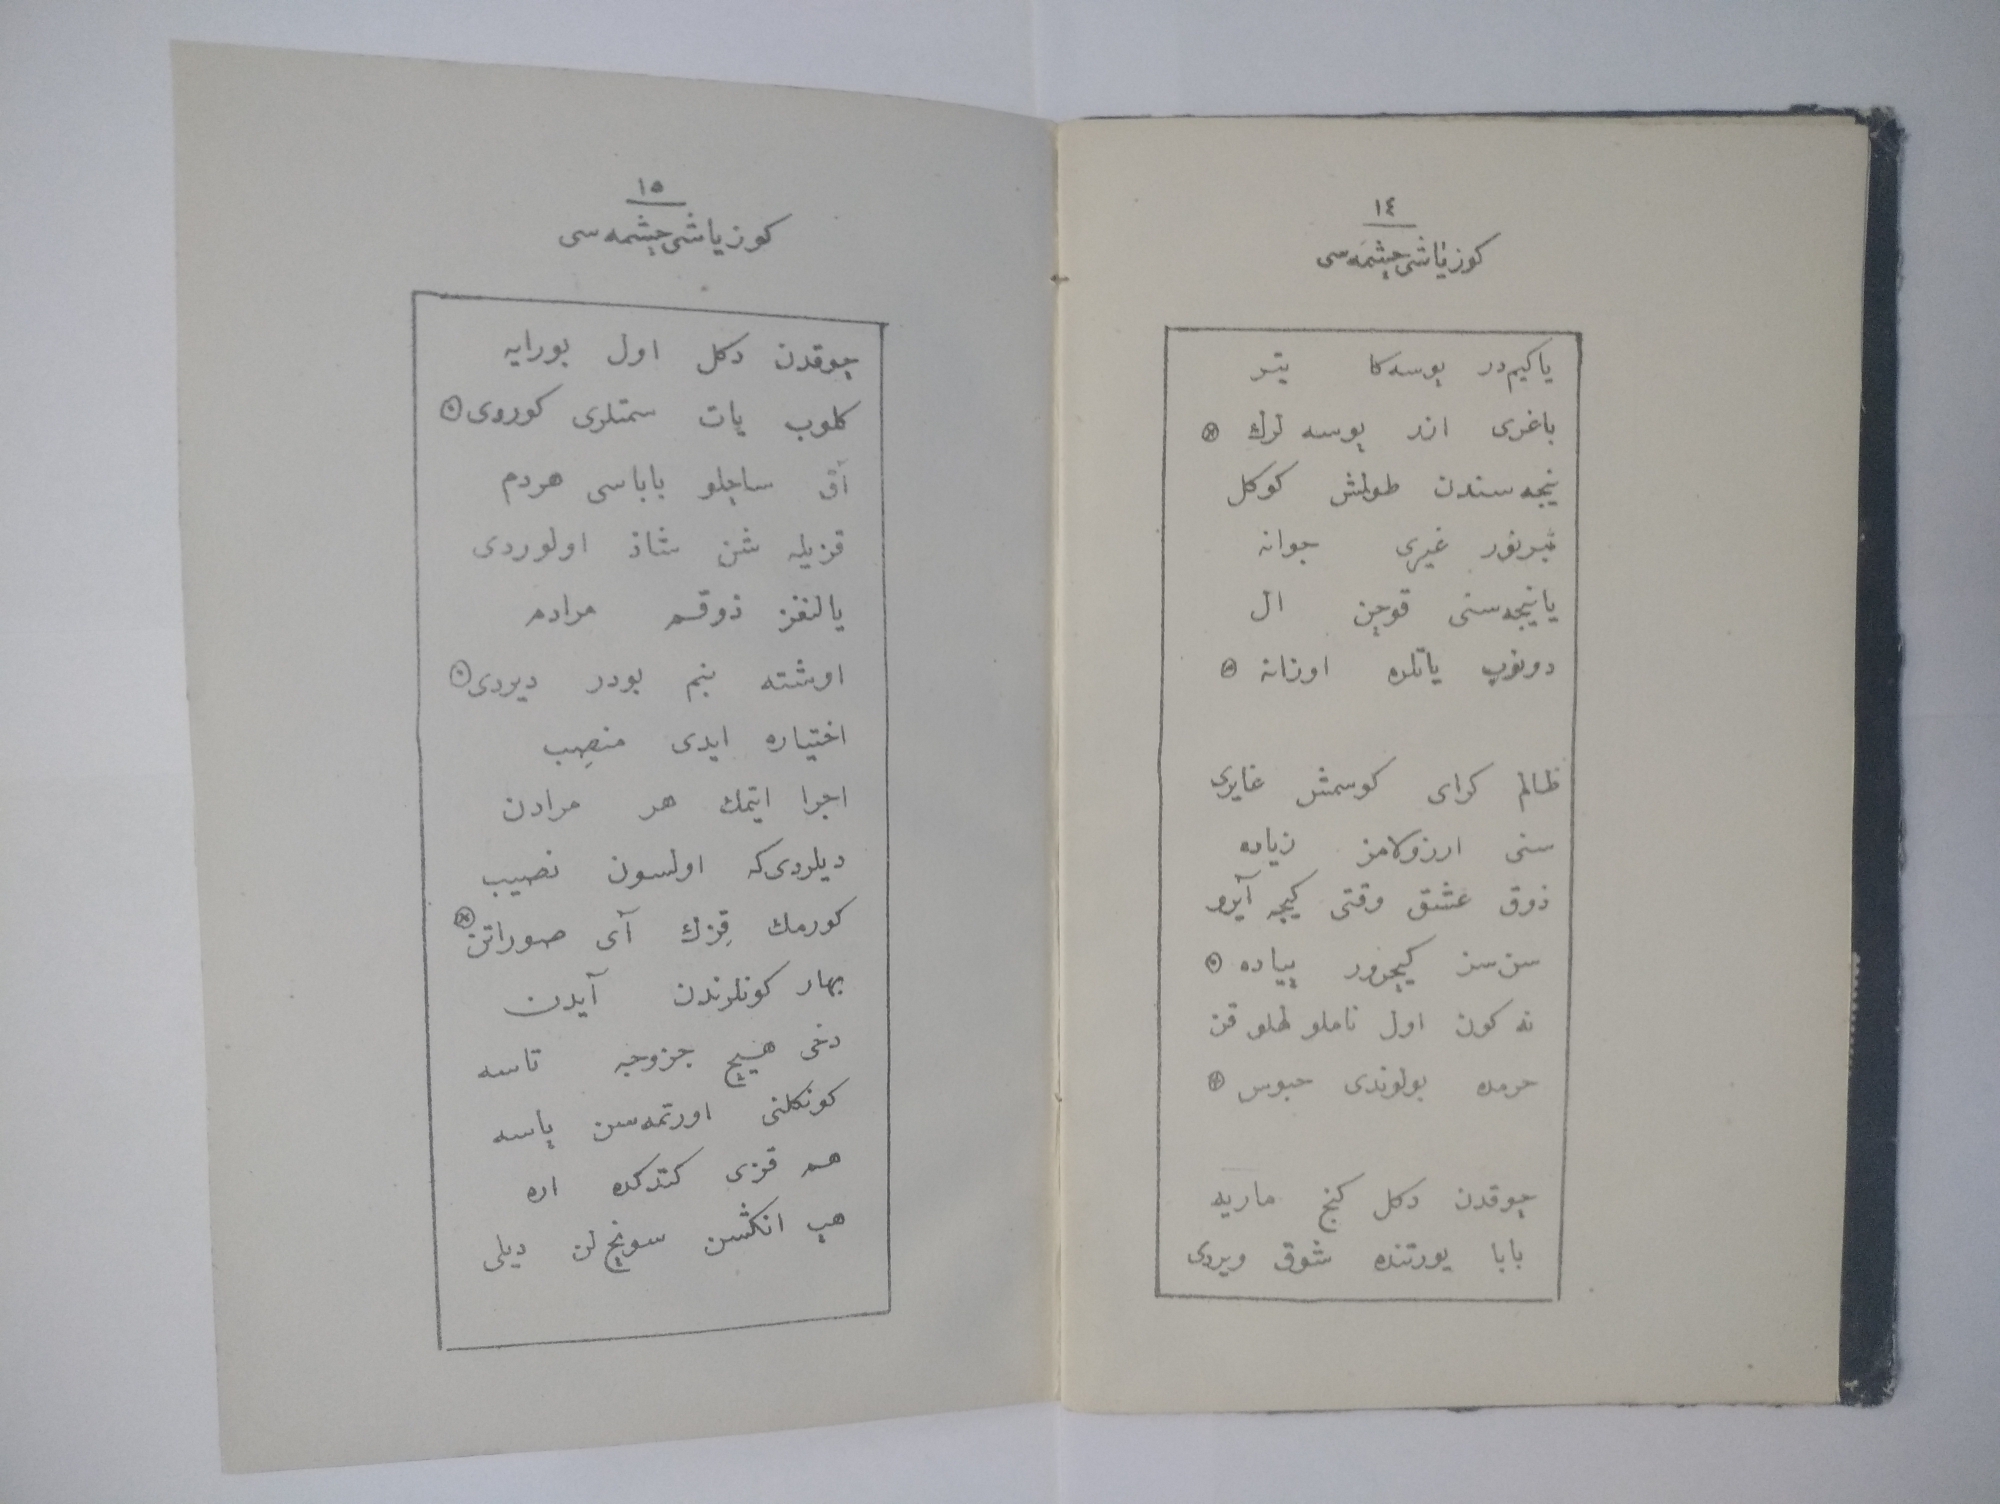 ١٤
كوز ياشی چشمه‌سی
ياكيم‌در بوسه‌كا يتر
باغری ازر بوسه لرك
نيجه‌سندن طولمش كوكل
غيری جوانه
يا نيجه‌سنی قوچن ال
دونوب ياتلره اوزانه
ظالم كرای كوسمش غايری
سنی ارزوكامز زياده
ذوق عشق وقتی كيجه آيرو
سن‌سز كيچرور پياده
نه كون اول ناملو لهلو قن
حرمده بولوندی حبوس
چوقدن دكل كنج ماريه
بابا يورتنده شوق ويردی
١٥
كوز ياشی چشمه‌سی
چوقدن دكل اول بورايه
كلوب يات سمتلری كوردی
آق ساچلو باباسی هردم
قزيله شن شاذ اولوردی
يالنغز ذوقم مرادم
اوشته بنم بودر ديردی
اختياره ايدی منصب
اجرا ايتمك هر مرادن
ديلردی‌كه اولسون نصيب
كورمك قِزك آی صوراتن
بهار كونلرندن آيدن
دخی هيچ جزوجه تاسه
كونكلنی اورتمه‌سن پاسه
هم قزی كتدكده اره
هپ انكشن سونچ‌لن ديلی